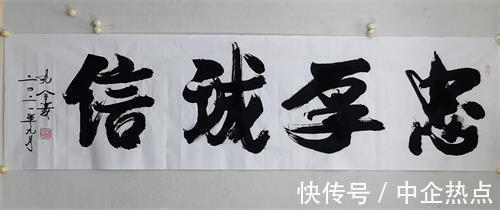 忠孚诚信
二〇二一年九月
快传号 / 中企热点